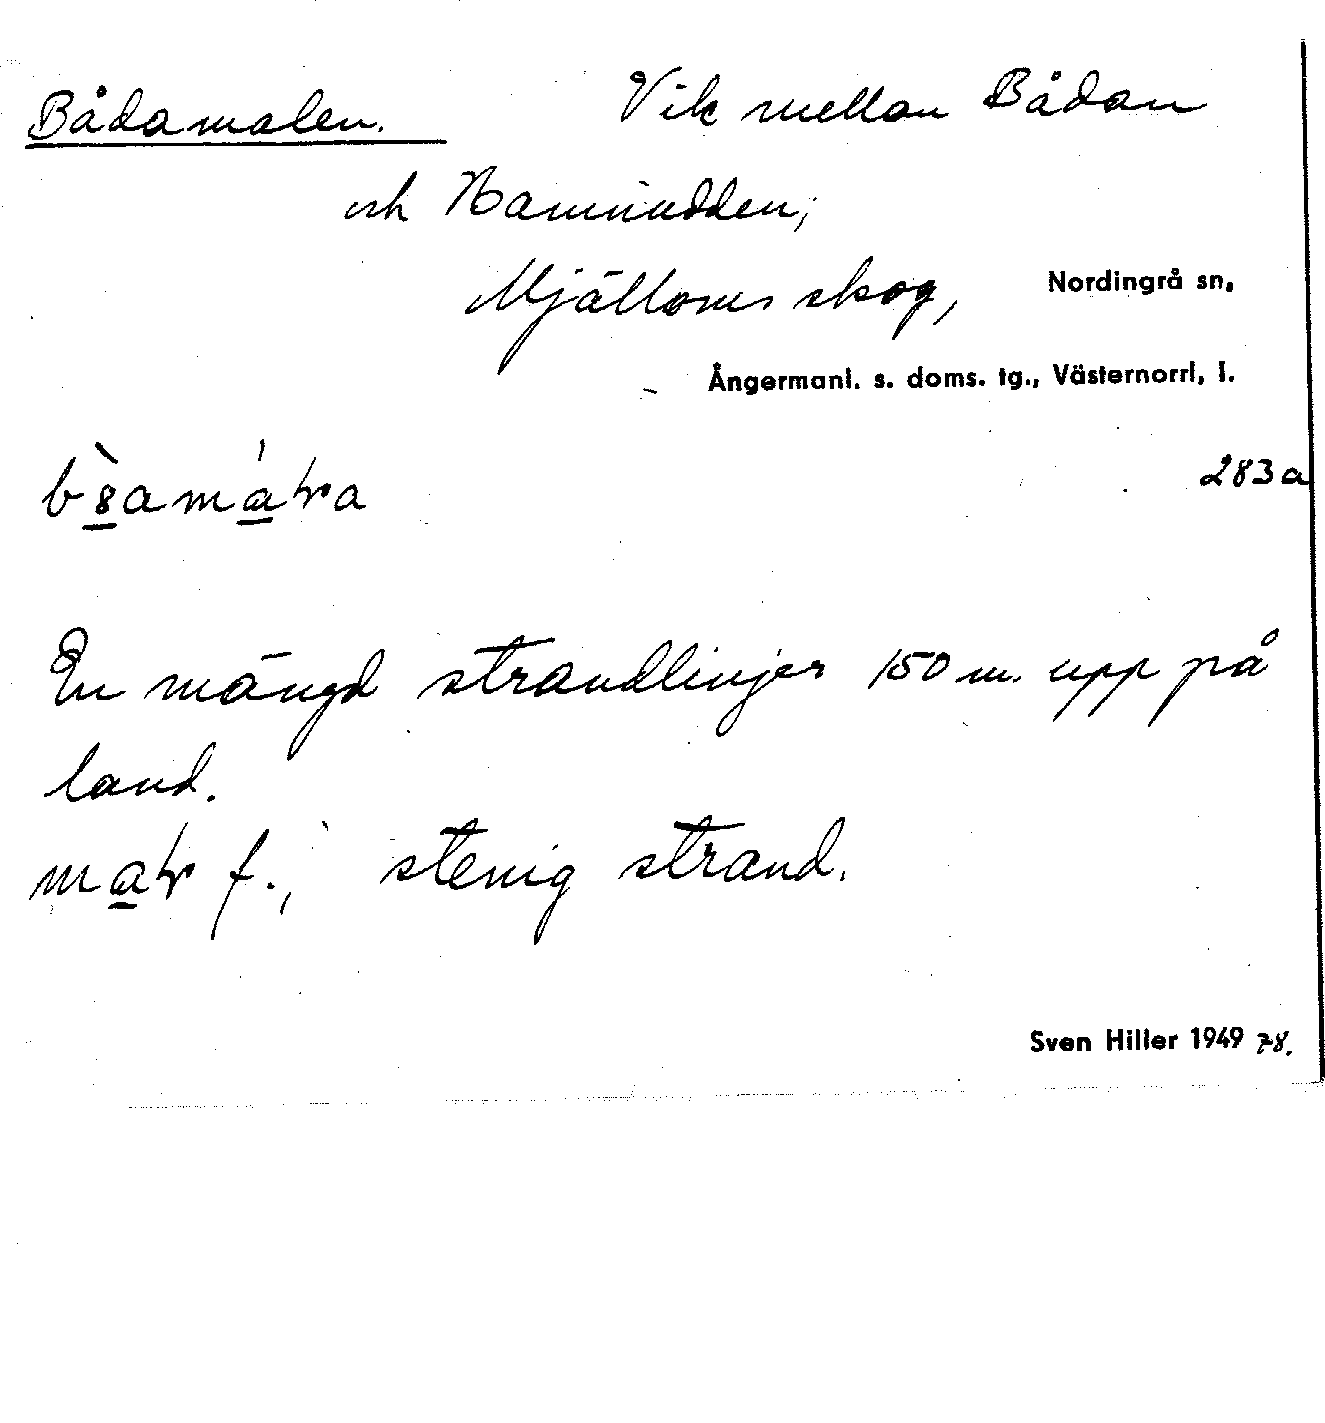 Bådamalen. Vik mellan Bådan
och Hamnudden;
Mjälloms skog, Nordingrå sn,
Ångermanl. s. doms. tg., Västernorrl, l.
283a
En mängd strandlinjer 150 m. upp på
land.
f., stenig strand.
Sven Hiller 1949 78.